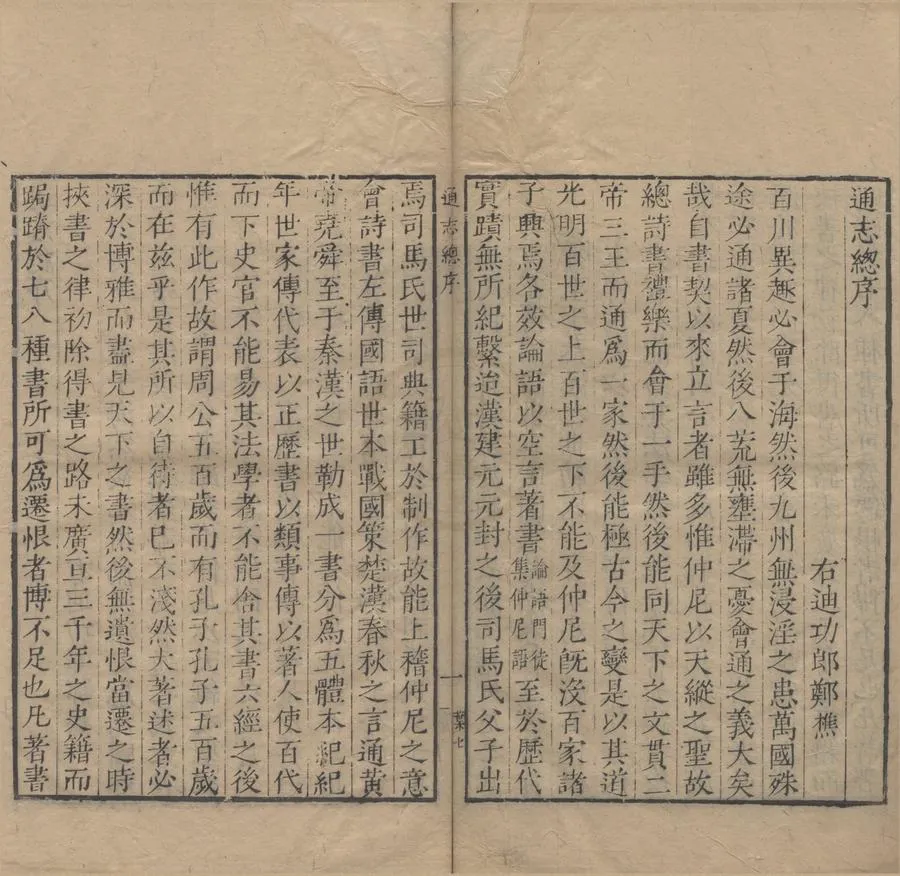 通志總序
右迪功郎鄭樵
百川異趣必會于海然後九州無浸淫之患萬國殊
途必通諸夏然後八荒無壅滯之憂會通之義大矣
哉自書契以來立言者雖多惟仲尼以天縱之聖故
總詩書禮樂而會于一手然後能同天下之文貫二
帝三王而通爲一家然後能極古今之變是以其道
光明百世之上百世之下不能及仲尼旣沒百家諸
子興焉各效論語以空言著書論語門徒集仲尼語至於歷代
實蹟無所紀繫迨漢建元元封之後司馬氏父子出
通志總序
一
焉司馬氏世司典籍工於制作故能上稽仲尼之意
會詩書左傳國語世本戰國策楚漢春秋之言通黃
帝堯舜至于秦漢之世勒成一書分爲五體本紀紀
年世家傳代表以正歷書以類事傳以著人使百代
而下史官不能易其法學者不能舍其書六經之後
惟有此作故謂周公五百歲而有孔子孔子五百歲
而在兹乎是其所以自待者已不淺然大著述者必
深於博雅而盡見天下之書然後無遺恨當遷之時
挾書之律初除得書之路未廣亘三千年之史籍而
跼蹐於七八種書所可爲遷恨者博不足也凡著書